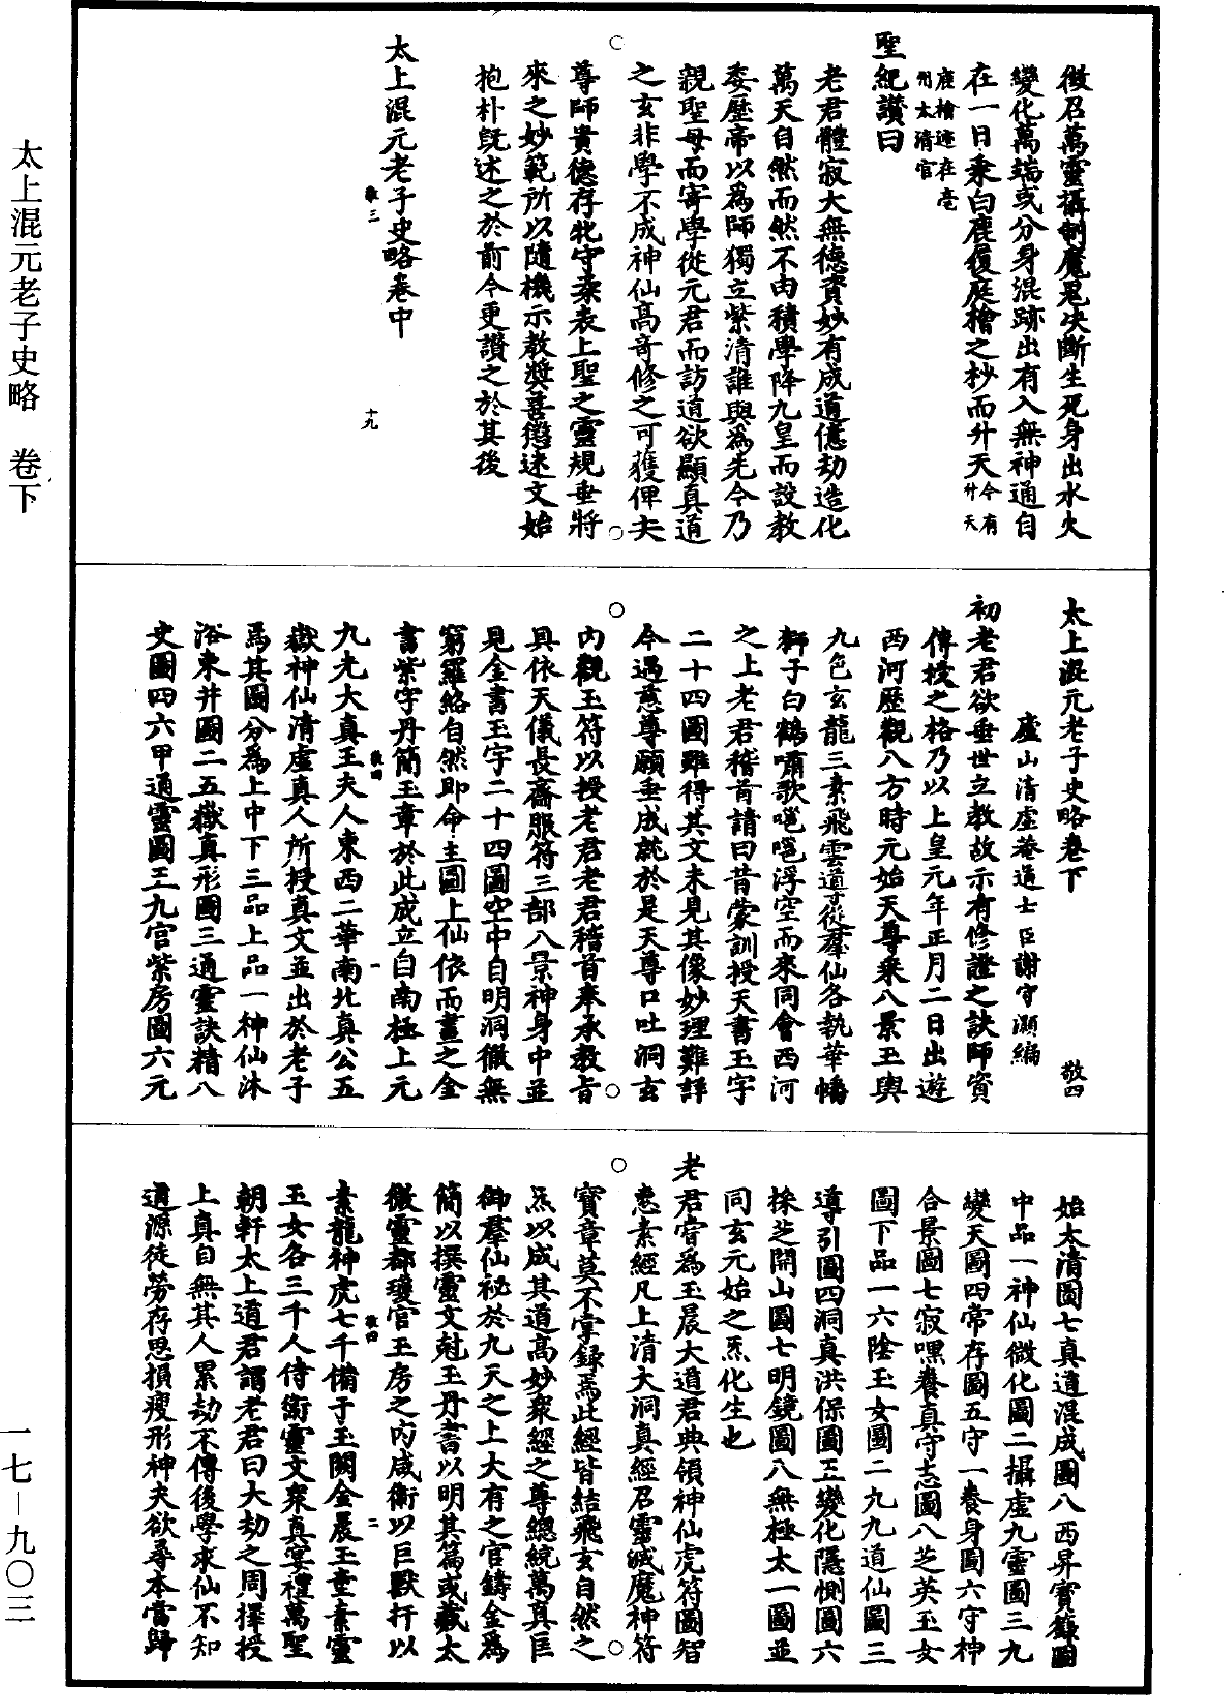 太上混元老子史略　卷下
徵召萬靈攝制魔鬼決斷生死身出水火
變化萬端或分身混跡出有入無神通自
在一日乘白鹿復庭檜之杪而升天今有升天
鹿檜迹在亳州太清宮
聖紀讚曰
老君體寂大無德資妙有成道億劫造化
萬天自然而然不由積學降九皇而設教
委歷帝以為師獨立紫清誰與為先今乃
親聖母而寄學從元君而訪道欲顯真道
之玄非學不成神仙高奇修之可獲俾夫
尊師貴德存牝守柔表上聖之靈規垂將
來之妙範所以隨機示教獎善懲迷文始
抱朴既述之於前今更讚之於其後
太上混元老子史略卷中
敬三　十九
太上混元老子史略卷下　敬四
廬山清虛菴道士臣謝守灝編
初老君欲垂世立教故示有修證之訣師資
傳授之格乃以上皇元年正月二日出遊
西河歷觀八方時元始天尊乘八景玉輿
九色玄龍三素飛雲導從羣仙各執華幡
獅子白鶴嘯歌嗈嗈浮空而來同會西河
之上老君稽首請曰昔蒙訓授天書玉字
二十四圖雖得其文未見其像妙理難詳
今遇慈尊願垂成就於是天尊口吐洞玄
內觀玉符以授老君老君稽首奉承教旨
具依天儀長齋服符三部八景神身中並
見金書玉字二十四圖空中自明洞徹無
窮羅絡自然即命主圖上仙依而畫之金
書紫字丹簡玉章於此成立自南極上元
敬四　一
九光大真王夫人東西二華南北真公五
嶽神仙清虛真人所授真文並出於老子
焉其圖分為上中下三品上品一神仙沐
浴東井圖二五嶽真形圖三通靈訣精八
史圖四六甲通靈圖五九宮紫房圖六元
始太清圖七真道混成圖八西昇寶籙圖
中品一神仙微化圖二攝虛九靈圖三九
變天圖四常存圖五守一養身圖六守神
合景圖七寂嘿養真守志圖八芝英玉女
圖下品一六陰玉女圖二九九道仙圖三
導引圖四洞真洪保圖五變化隱惻圖六
採芝開山圖七明鏡圖八無極太一圖並
同玄元始之炁化生也
老君甞為玉晨大道君典領神仙虎符圖智
慧素經凡上清大洞真經召靈滅魔神符
寶章莫不掌錄焉此經皆結飛玄自然之
炁以成其道高妙眾經之尊總統萬真巨
御羣仙祕於九天之上大有之宮鑄金為
簡以撰靈文尅玉丹書以明其篇或藏太
微靈都瓊宮玉房之內咸衛以巨獸扞以
敬四　二
素龍神虎七千備于玉闕金晨玉童素靈
玉女各三千人侍衛靈文眾真宴禮萬聖
朝軒太上道君謂老君曰大劫之周擇授
上真自無其人累劫不傳後學求仙不知
道源徒勞存思損瘦形神夫欲尋本當歸
一七－九〇三